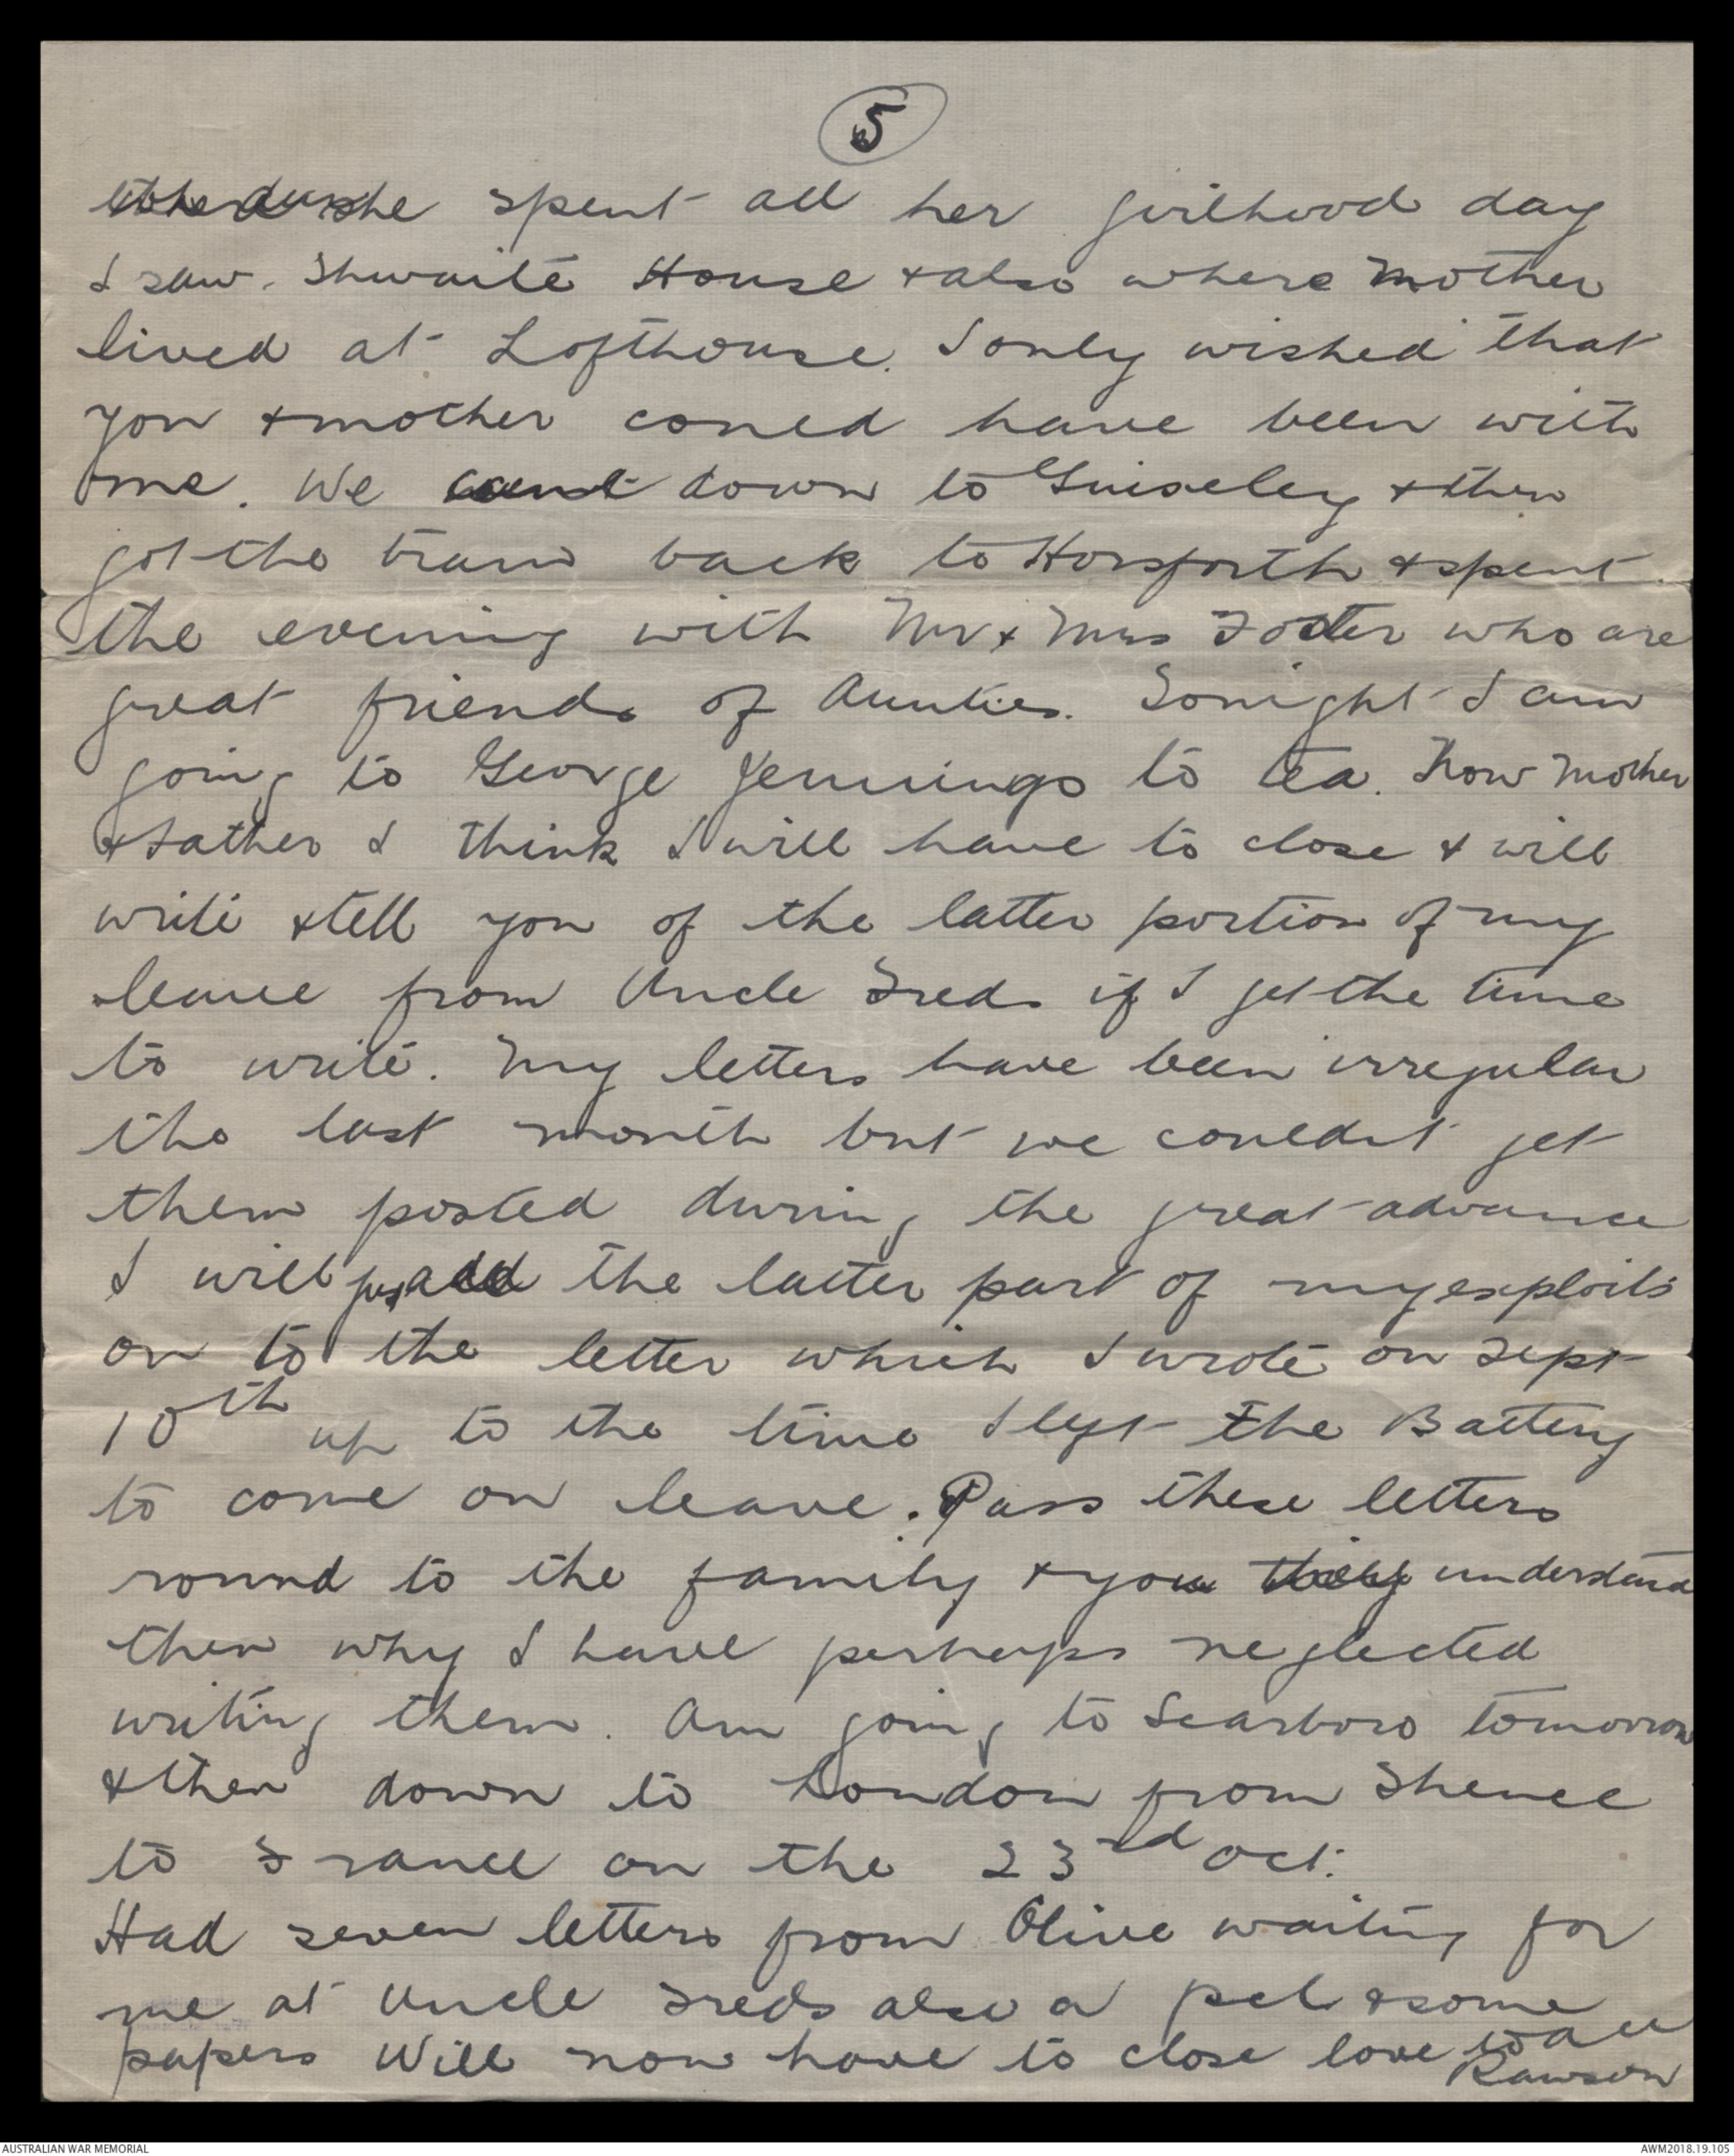 5
she spent all her girlhood day
I saw. Thwaite House & also where Mother
lived at Lofthouse. I only wished that
you & mother could have been with
me. We went down to Guiseley & then
got the tram back to Horsforth & spent
the evening with Mr & Mrs Foster who are
great friends of Aunties. Tonight I am
going to George Jennings to tea. Now Mother
& Father I think I will have to close & will
write & tell you of the latter portion of my
leave from Uncle Freds if I get the time
to write. My letters have been irregular
the last month but we couldnt get
them posted during the great advance
I will just add the latter part of my exploits
on to the letter which I wrote on Sept
10th up to the time I left the Battery
to come on leave. Pass these letters
round to the family & you understand
then why I have perhaps neglected
writing them. Am going to Scarboro tomorrow
& then down to London from Thence
to France on the 23rd Oct.
Had seven letters from Olive waiting for
me at Uncle Freds also a pcl & some
papers Will now have to close love to all
Rawson
AUSTRALIAN WAR MEMORIAL
AWM2018.19.105